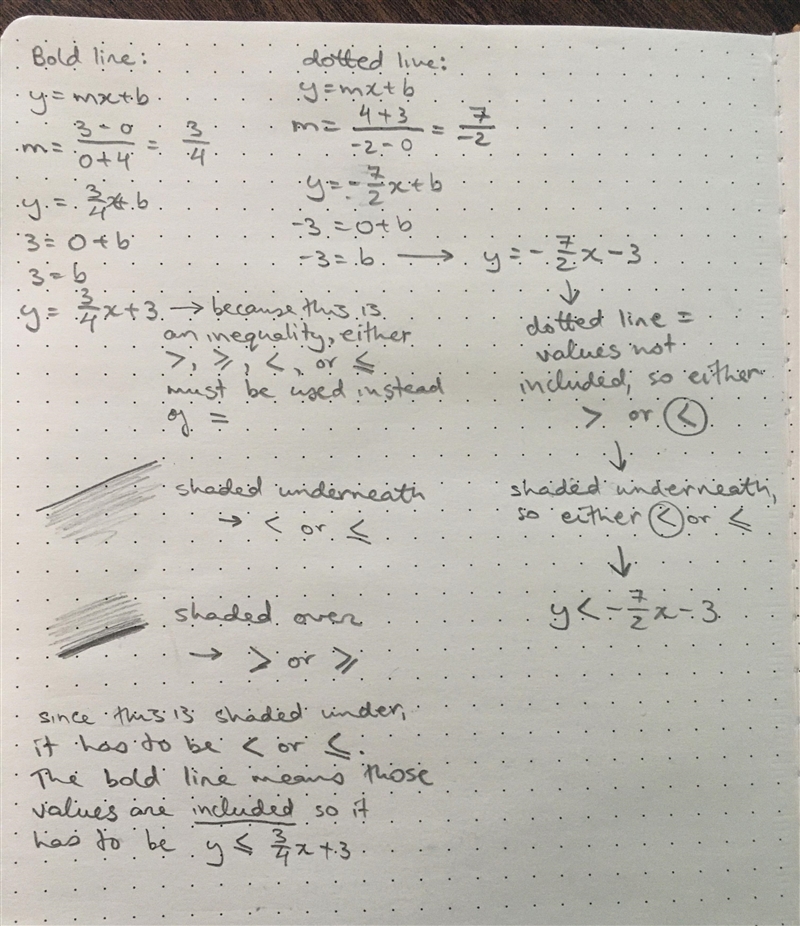 Bold line:
y=mx+b
m= 3-0/0+4 = 3/4
y= 3/4x+b
3=0+b
3=b
y= 3/4x+3 → because this is
an inequality, either
>, ≥, <, or ≤
must be used instead
of =
shaded underneath
→ < or ≤
shaded over
→ > or ≥
since this is shaded under,
it has to be < or ≤.
The bold line means those
values are included so it
has to be y ≤ 3/4x+3
dotted line:
y=mx+b
m= 4+3/-2-0 = 7/-2
y=-7/2x+b
-3=0+b
-3=b → y=-7/2x-3
↓
dotted line =
values not
included, so either
> or <
↓
shaded underneath,
so either < or ≤
↓
y<-7/2x-3